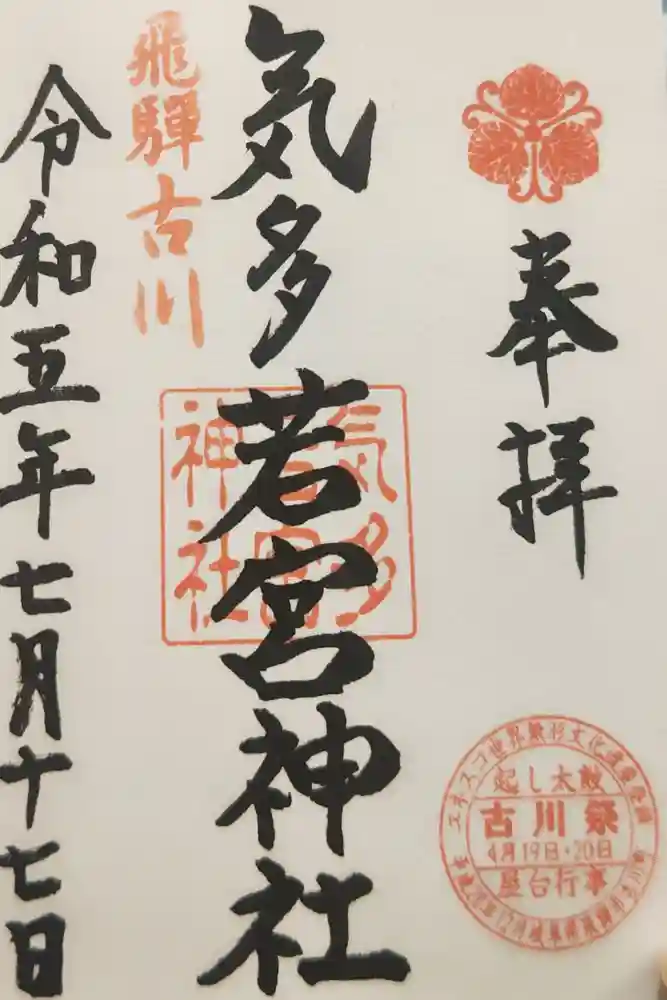 奉拝
気多若宮神社
気多
若宮
神社
飛騨古川
令和五年七月十七日
ユネスコ世界無形文化遺産登録
起し太鼓
古川祭
4月19日・20日
屋台行事